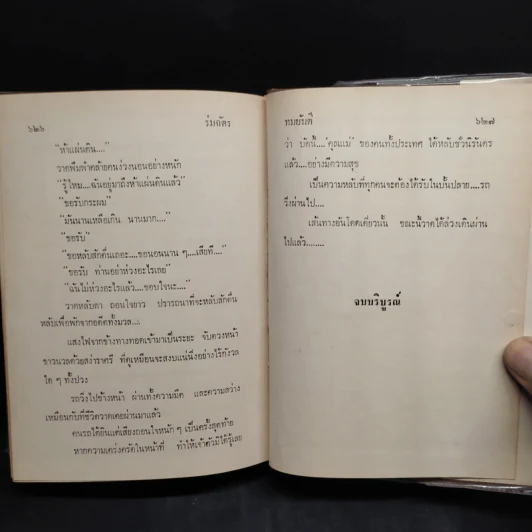 ๖๒๖ ร่มฉัตร
"ห้าแผ่นดิน...."
วาดพึมพำคล้ายคนง่วงนอนอย่างหนัก
"รู้ไหม....ฉันอยู่มาถึงห้าแผ่นดินแล้ว"
"ขอรับกระผม"
"มันนานเหลือเกิน นานมาก...."
"ขอรับ"
"ขอหลับสักตื่นเถอะ....ขอนอนนาน ๆ....เสียที...."
"ขอรับ ท่านอย่าห่วงอะไรเลย"
"ฉันไม่ห่วงอะไรแล้ว....ขอบใจนะ...."
วาดหลับตา ถอนใจยาว ปรารถนาที่จะหลับสักตื่น
หลับเพื่อพักจากอดีตทั้งมวล....
แสงไฟจากข้างทางทอดเข้ามาเป็นระยะ จับดวงหน้า
ขาวนวลด้วยสง่าราศี ที่ดูเหมือนจะสงบแน่นิ่งอย่างไร้กังวล
ใด ๆ ทั้งปวง
รถวิ่งไปข้างหน้า ผ่านทั้งความมืด และความสว่าง
เหมือนกับที่ชีวิตวาดเคยผ่านมาแล้ว
คนรถได้ยินแต่เสียงถอนใจหนัก ๆ เป็นครั้งสุดท้าย
หากความเคร่งครัดในหน้าที่ ทำให้เจ้าตัวมิได้รู้เลย
ทมยันตี ๖๒๗
ว่า บัดนี้....'คุณแม่' ของคนทั้งประเทศ ได้หลับชั่วนิรันดร
แล้ว....อย่างมีความสุข
เป็นความหลับที่ทุกคนจะต้องได้รับในบั้นปลาย....รถ
วิ่งผ่านไป....
เส้นทางอันโดดเดี่ยวนั้น ขณะนี้วาดได้ล่วงเดินผ่าน
ไปแล้ว........
จบบริบูรณ์